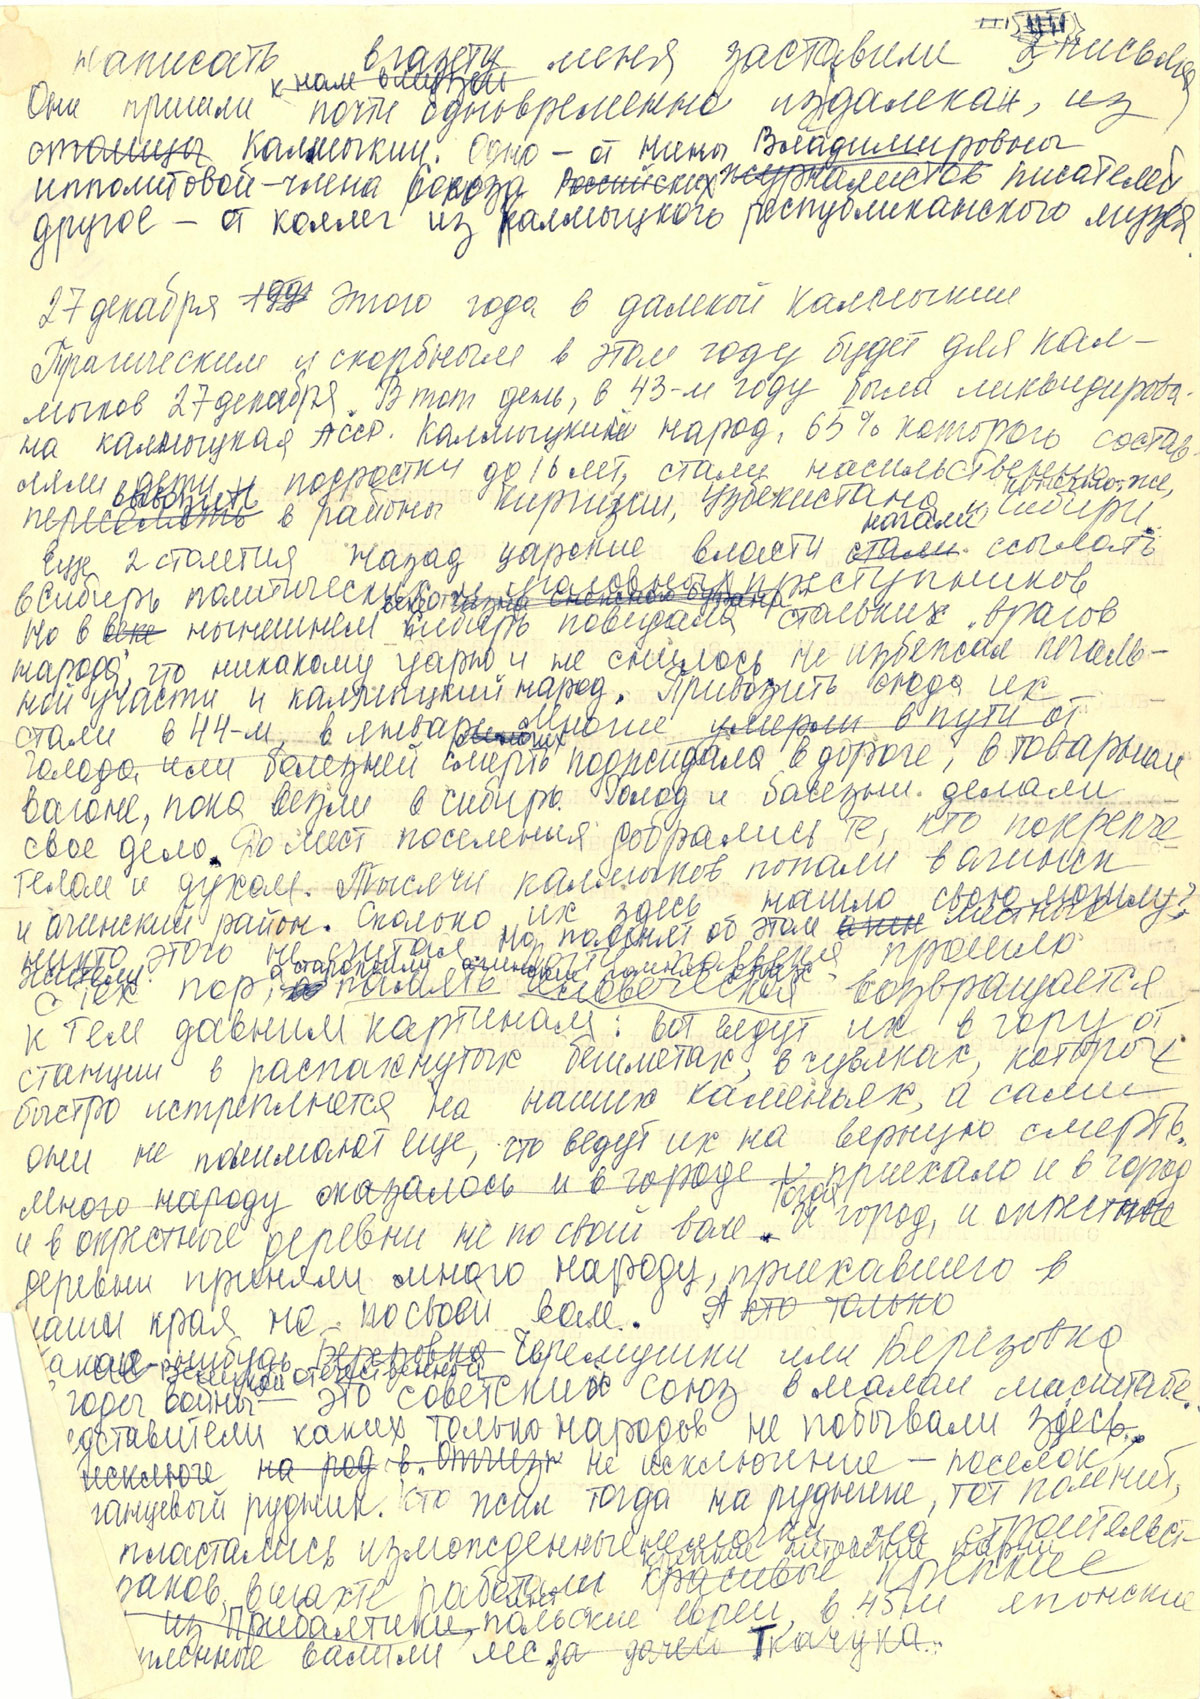 Написать в газету меня заставили 2 письма
к нам в музей
Они пришли почти одновременно издалека, из
станицы Калмыкии. Одно – от Нины Владимировны
Ипполитовой – члена Союза Российских журналистов писателей
другое – от коллег из Калмыцкого республиканского музея.
27 декабря 199 этого года в далекой Калмыкии
Трагическим и скорбным в этом году будет для кал-
мыков 27 декабря. В тот день, в 43-м году была ликвидирова-
на Калмыцкая АССР. Калмыцкий народ, 65% которого состав-
ляли дети и подростки до 16 лет, стали насильственно
вывозить
переселять в районы Киргизии, Узбекистана, Сибири.
начали
Еще 2 столетия назад царские власти стали ссылать
в Сибирь политических и уголовных преступников
Но в веке нынешнем Сибирь повидала стольких "врагов
народа", что никакому царю и не снилось. Не избежал печаль-
ной участи и калмыцкий народ. Привозить сюда их
стали в 44-м, в январе. Многие умерли в пути от
голода или болезней смерть поджидала в дороге, в товарном
вагоне, пока везли в Сибирь. Голод и болезни делали
свое дело. До мест поселения добрались те, кто покрепче
телом и духом. Тысячи калмыков попали в Ачинск
и Ачинский район. Сколько их здесь нашло свою могилу?
никто этого не считал но помнят об этом местные
жители.
С тех пор, а память человеческая возвращается
к тем давним картинам: вот ведут их в гору от
станции в распахнутых бешметах, в чувяках, которые
быстро истреплются на наших каменьях, а сами
они не понимают еще, что ведут их на верную смерть.
Много народу оказалось и в городе приехало и в город
и в окрестные деревни не по своей воле. И город, и окрестные
тогда
деревни приняли много народу, приехавшего в
наши края не по своей воле. А кто только
какая-нибудь Березовка Черемушки или Березовка
Великой Отечественной
годы войны – это советский союз в малом масштабе.
едставители каких только народов не побывали здесь.
исключе на род в Отчизн не исключение – поселок
ганцевый рудник. Кто жил тогда на руднике, тот помнит,
пластались изможденные немочки на строительст-
крепкие литовские парни
раков, в шахте работали красивые крепкие
из Прибалтики, польские евреи, в 45-м японские
пленные валили лес. за дачей Ткачука.